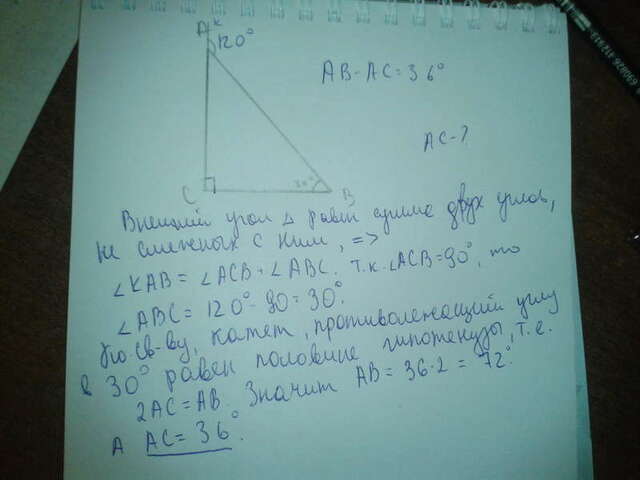 A K
120°
AB-AC=36°
AC-?
30°
C
B
Внешний угол Δ равен сумме двух углов,
не смежных с ним, =>
∠KAB = ∠ACB + ∠ABC. т.к. ∠ACB=90°, то
∠ABC = 120°-90=30°.
По св-ву, катет, противолежащий углу
в 30° равен половине гипотенузы, т.е.
2AC=AB. Значит AB = 36·2 = 72°.
А AC=36°.